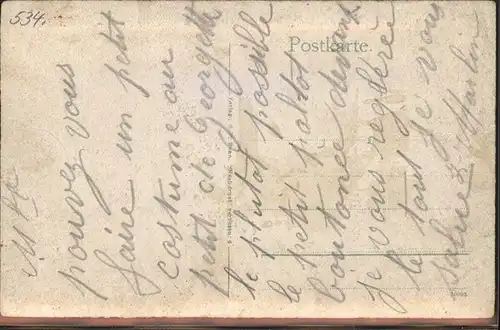 534.
Postkarte.
M
pouvez vous
faire un petit
costume au
petit de Georgette
le plutot possible
le petit paltot
boutonée devant
je vous regleree
le tout je vous
salue